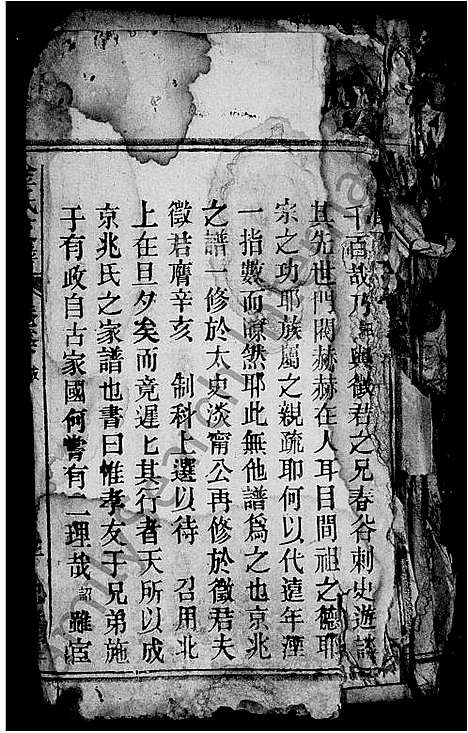 千百哉乃與徵君之兄春谷刺史遊談
其先世門閥赫赫在人耳目間祖之德耶
宗之功耶族屬之親疏耶何以代遠年湮
一指數而瞭然耶此無他譜為之也京兆
之譜一修於太史淡甯公再修於徵君夫
徵君膺辛亥 制科上選以待 召用北
上在旦夕矣而竟遲匕其行者天所以成
京兆氏之家譜也書曰惟孝友于兄弟施
于有政自古家國何嘗有二理哉詔雖宦